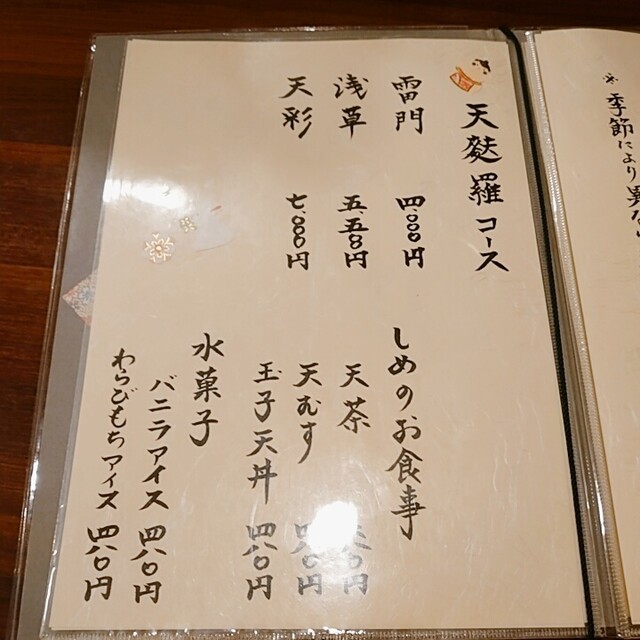 天麩羅コース
雷門 四、〇〇〇円
浅草 五、五〇〇円
天彩 七、〇〇〇円
しめのお食事
天茶
天むす
玉子天丼 四八〇円
水菓子
バニラアイス 四八〇円
わらびもちアイス 四八〇円
※季節により異な